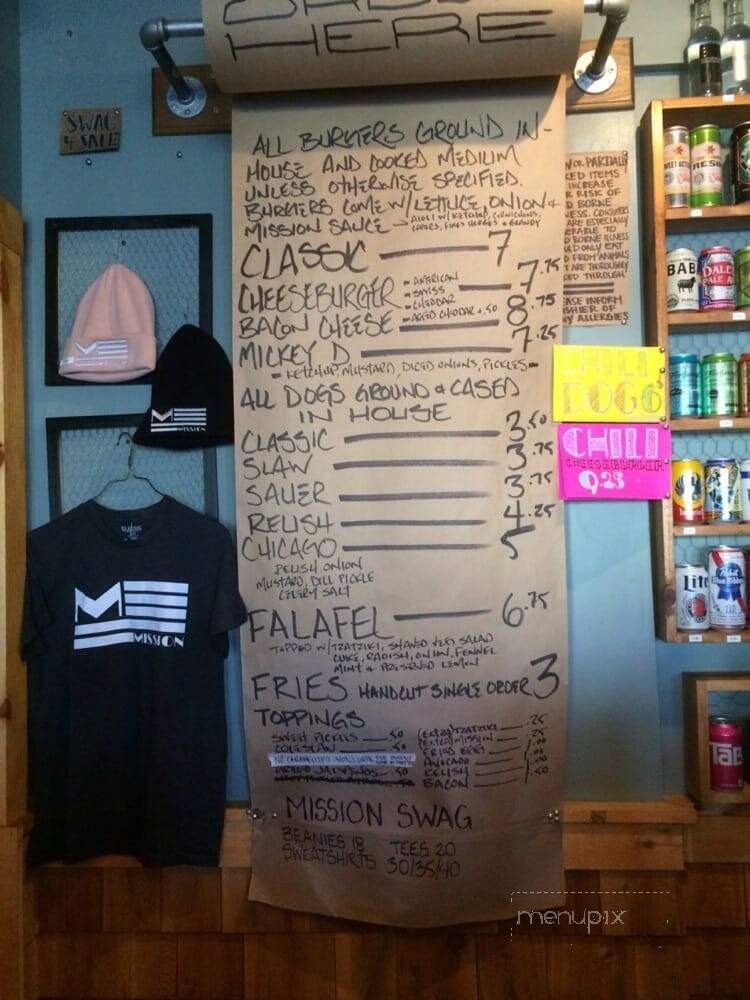 ORDER
HERE
SWAG
4 SALE
ALL BURGERS GROUND IN-
HOUSE AND COOKED MEDIUM
UNLESS OTHERWISE SPECIFIED.
BURGERS COME W/ LETTUCE, ONION &
MISSION SAUCE - AIOLI W/ KETCHUP, CORNICHONS,
CAPERS, FINES HERBES & BRANDY
CLASSIC 7
CHEESEBURGER - AMERICAN 7.75
- SWISS
- CHEDDAR
- AGED CHEDDAR +.50
BACON CHEESE 8.75
MICKEY D 7.25
- KETCHUP, MUSTARD, DICED ONIONS, PICKLES -
ALL DOGS GROUND & CASED
IN HOUSE
CLASSIC 3.50
SLAW 3.75
SAUER 3.75
RELISH 4.25
CHICAGO 5
RELISH ONION
MUSTARD, DILL PICKLE
CELERY SALT
FALAFEL 6.75
TOPPED W/ TZATZIKI, SHAVED VEG SALAD
CUKE, RADISH, ONION, FENNEL
MINT & PRESERVED LEMON
FRIES HANDCUT SINGLE ORDER 3
TOPPINGS
SWEET PICKLES .50
COLESLAW .50
NO CARAMELIZED ONIONS UNTIL
JALAPENOS .50
(EXTRA) TZATZIKI .25
(EXTRA) MISSION .25
FRIED EGG 1.00
AVOCADO 1.00
RELISH
BACON 1.50
MISSION SWAG
BEANIES 18 TEES 20
SWEATSHIRTS 30/35/40
W OR PARTIALLY
KED ITEMS
INCREASE
R RISK OF
D BORNE
NESS. CONSUMERS
ARE ESPECIALLY
ERABLE TO
D BORNE ILLNESS
ULD ONLY EAT
D FROM ANIMALS
T ARE THOROUGHLY
KED THROUGH
EASE INFORM
SHIER OF
NY ALLERGIES
CHILI
DOG 6
CHILI
CHEESEBURGER
9.25
M
MISSION
M
MISSION
BAB
DALE'S
PALE A
Lite
Pabst
Blue Ribbon
Tab
menupix